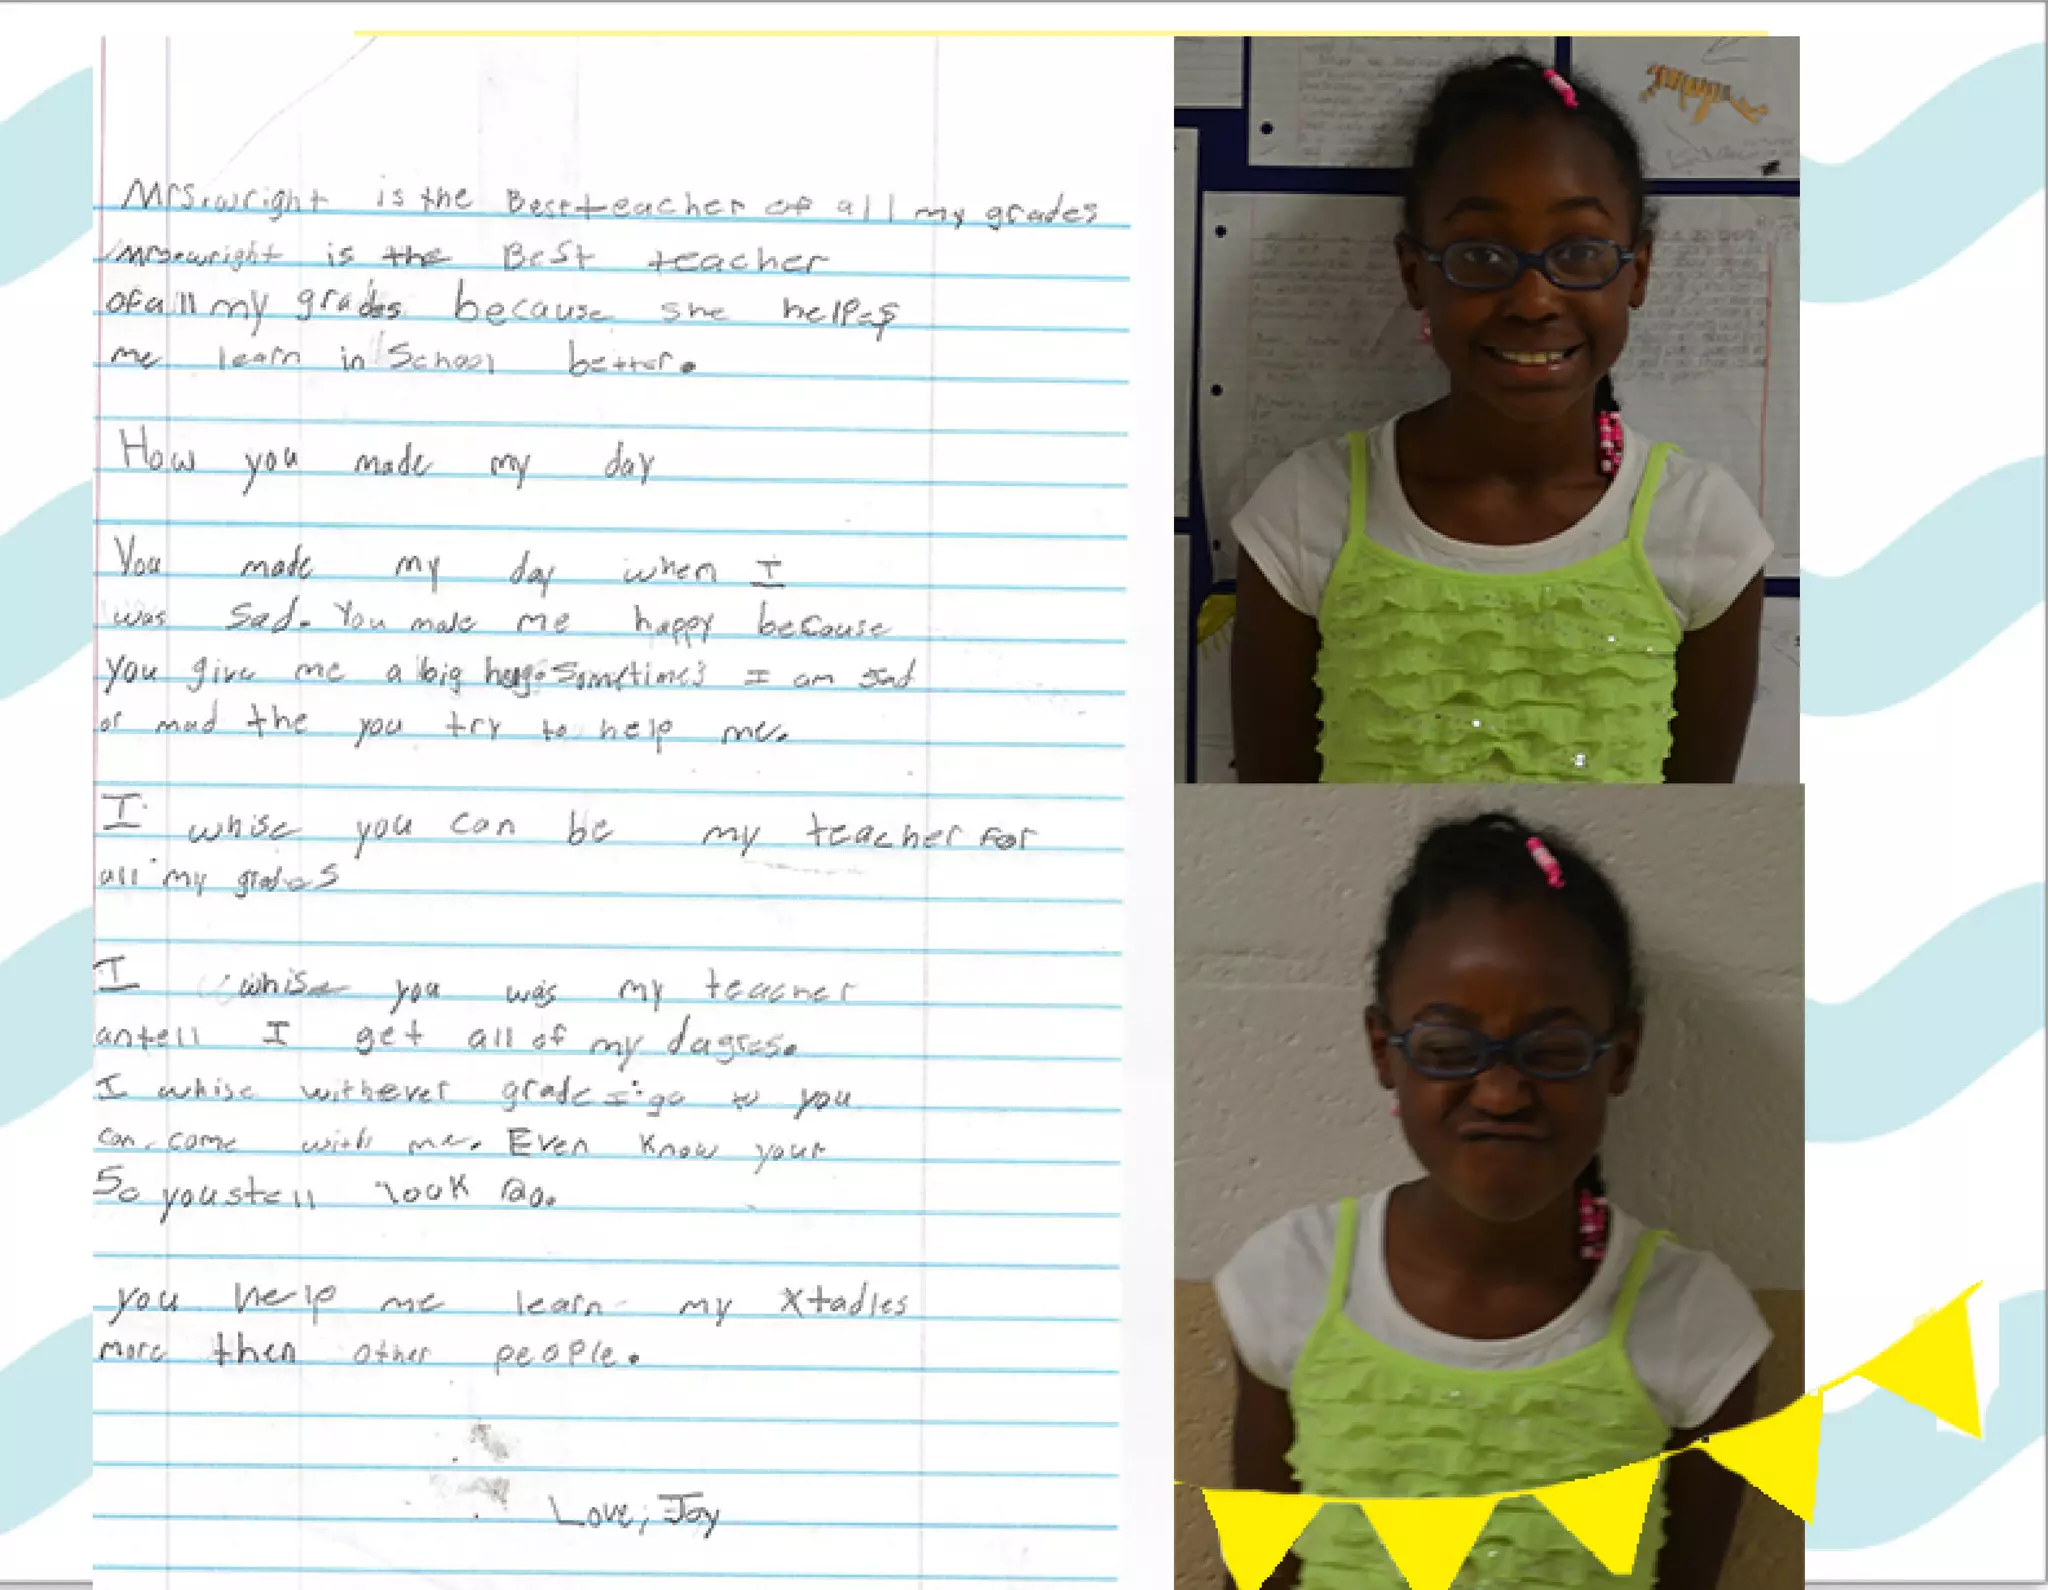 Mrs.wright is the Best teacher of all my grades
Mrs.wright is the Best teacher
of all my grades because she helps
me learn in School better.
How you made my day
You made my day when I
was sad. You made me happy because
you give me a big hug. Sometimes I am sad
or mad the you try to help me.
I whise you can be my teacher For
all my grades
I whise you was my teacher
antell I get all of my dagres.
I whise withever grade I go to you
can come with me. Even Know your
So you stell look
you help me learn my xtadies
more then other people.
Love, Joy